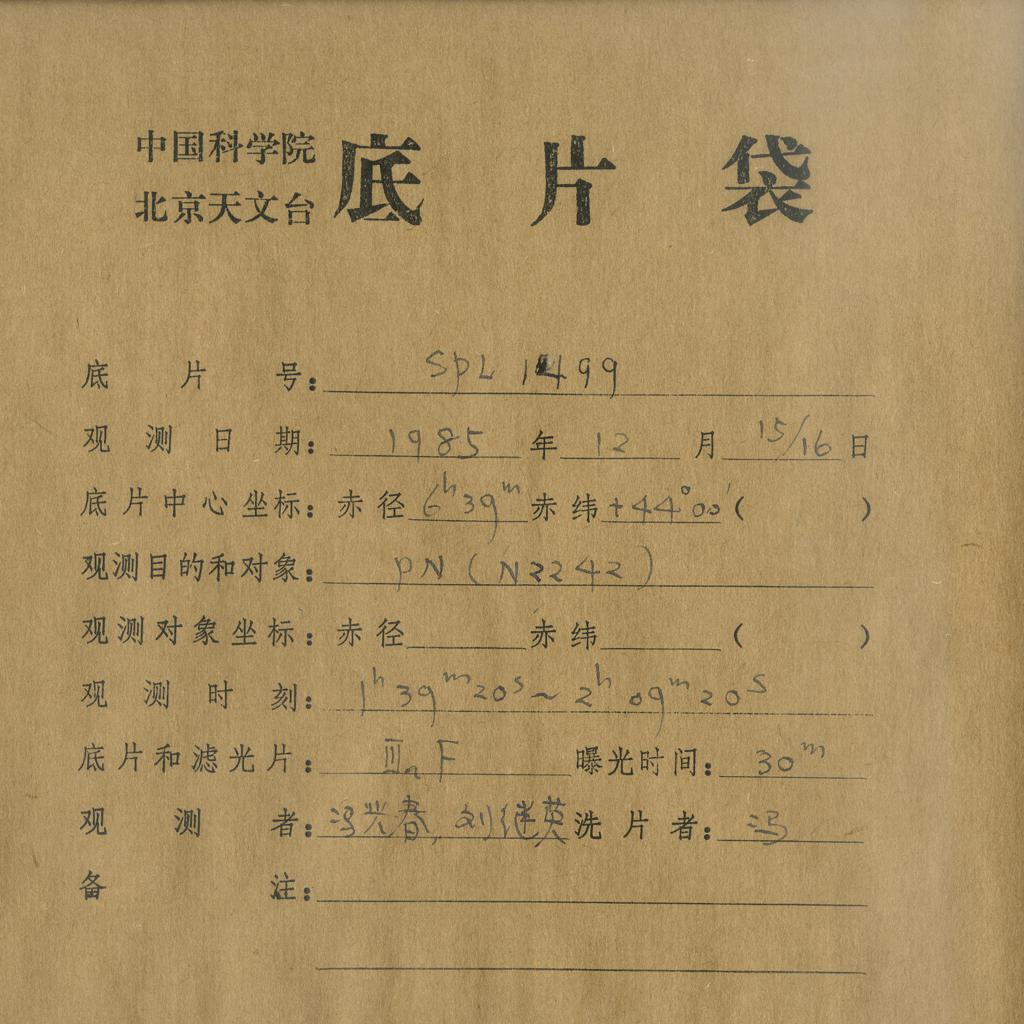 中国科学院
北京天文台
底片袋
底片号：SPL 1499
观测日期：1985年12月15/16日
底片中心坐标：赤径6ʰ39ᵐ赤纬+44°00′（ ）
观测目的和对象：PN（N2242）
观测对象坐标：赤径 赤纬 （ ）
观测时刻：1ʰ39ᵐ20ˢ~2ʰ09ᵐ20ˢ
底片和滤光片：ⅢaF 曝光时间：30ᵐ
观测者：冯光春，刘继英 洗片者：冯
备注：